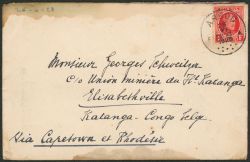 Monsieur Georges Schweitzer
c/o Union Minière du Ht Katanga
Elisabethville
Katanga - Congo Belge
Via Capetown et Rhodésie